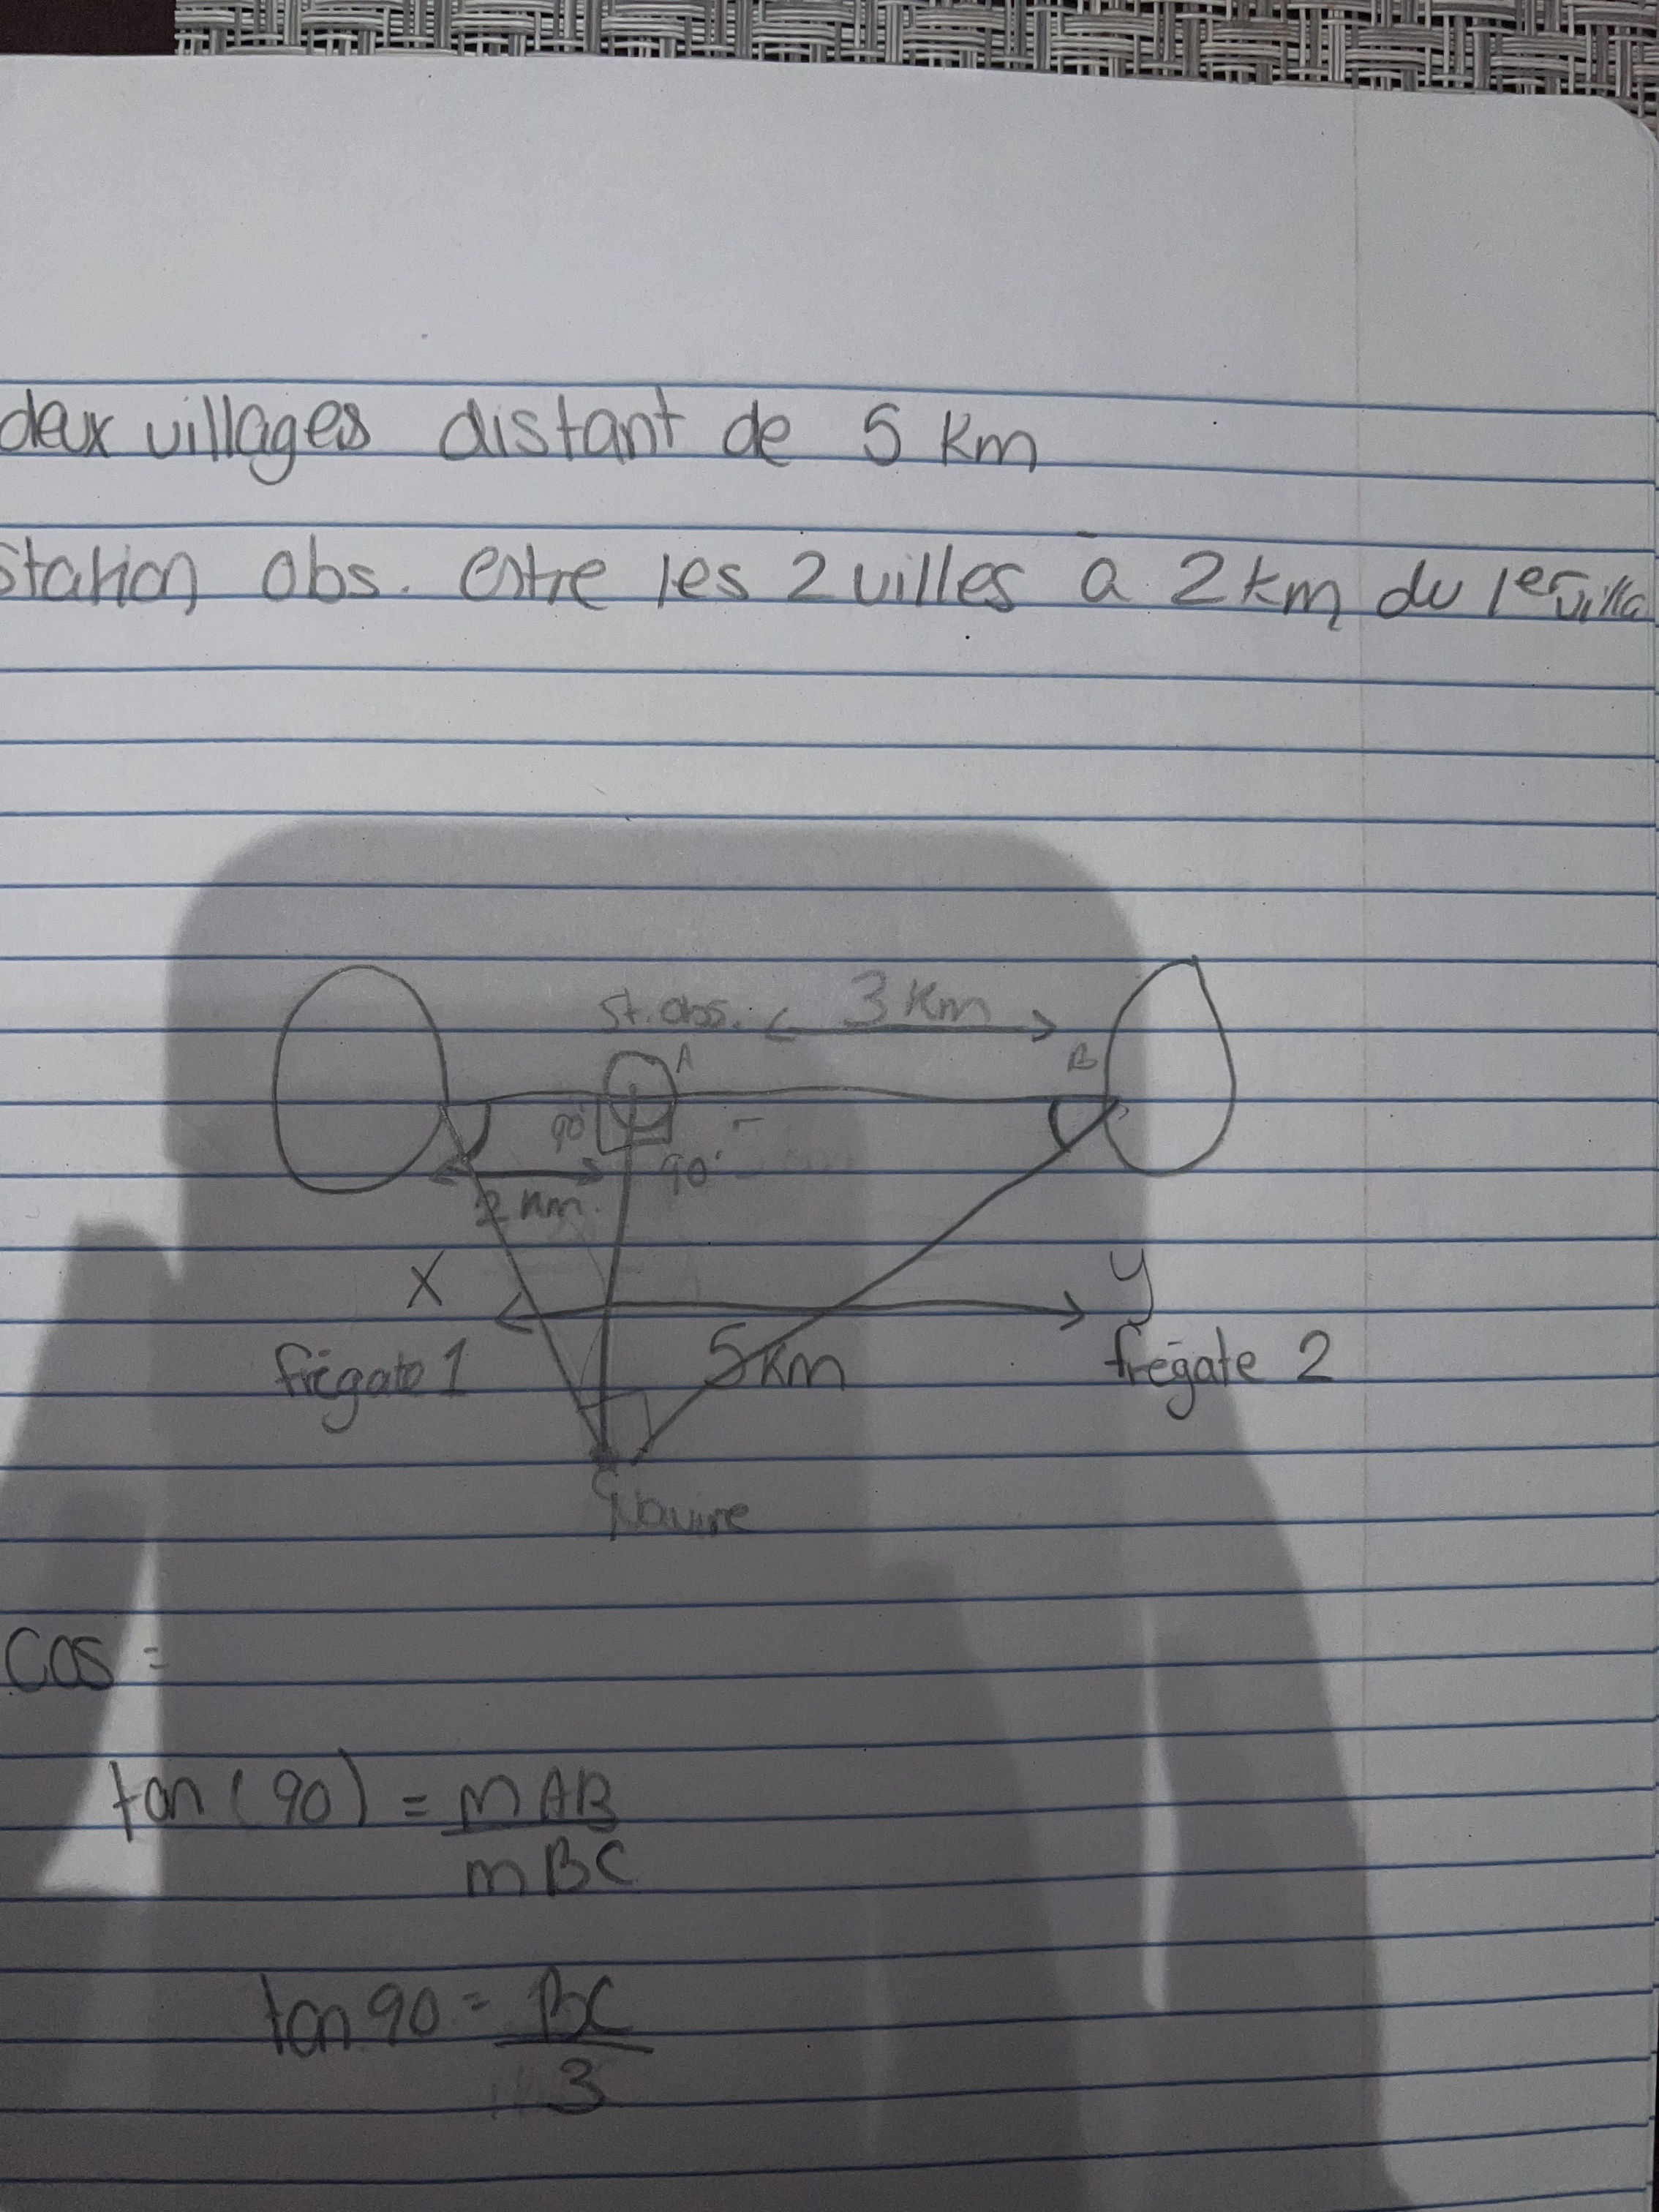 deux villages distant de 5 km
Station obs. entre les 2 villes à 2 km du 1er villa
St. obs. 3 km
A B
90
90°
2 km.
X y
frégate 1 5 km frégate 2
C
Navire
cos =
tan (90) = mAB
mBC
tan 90 = BC
3